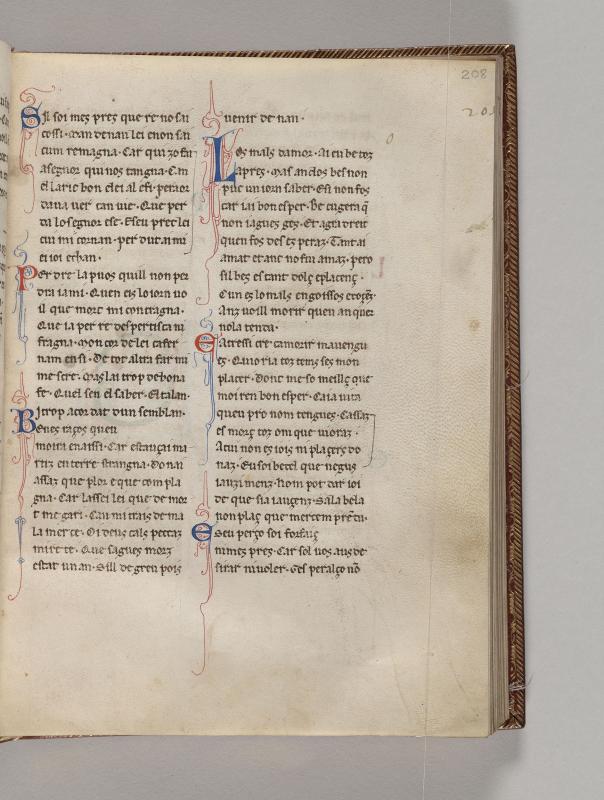 208
Sil soi mez prez que re no sai
cossi · Man de nan lei e non sai
cum remagna · Car qui zo fai
a segnor qui nos tangna · Can
el lario bon elei al
daua uer tan uic · Que per
da lo segnor esc · Eseu prec lei
cui mi cornan · per
ei ioi
Per dre la puos quill non per
dra ia mi · Quen eis lo iorn uo
il que mort mi contragna ·
Que ia per re despertisca ni
fragna · Mon cor de lei
nam en si · De tot altra far mi
me fere · Mas lai trop de bona
fe · Quel sen el saber · El talan ·
I trop acordat dun semblan ·
Benes raços quen
moira en aissi · Car
en terre stragna · Donai
assaz que plor e que com pla
gna · Car lassei lei que de mor
t me gari · Can mi trais de ma
la merce · Oi deus cals peccaz
mi · Que sagues morz
estat un an · Sill de gren pois
uenir de nan ·
Los mals damor · Ai eu be toz
apres · Mas anc los bes non
puc un iorn saber · E si non fos
car iai bon esper · Be cugera q̃
non iagues ges · Et agra dreit
quen fos desesperaz · Tant ai
amat et anc no fui amaz · pero
sil bes es tant dolç e plaçenç ·
Cun es lo mals engoissos e
Anz uoill morir quen an quez
nola tenta ·
Eatressi cre camorar mauengu
es · Quioria toz tems ses mon
placer · Donc me so meillç que
moiren bon esper · Ca ia uita
queu pro nom tengues · Cassaz
es morz toz om que uioraz ·
A cui non es iois ni plaçers do
naz · Eu soi becel que negus
iauzimenz · Nom pot dar ioi
de que sia iauçenz · Sala bela
non plaç que mercem
Eseu perço soi forfaiç
ni mez prez · Car sol uos aus de
sirar ni uoler · Ges per alço nõ